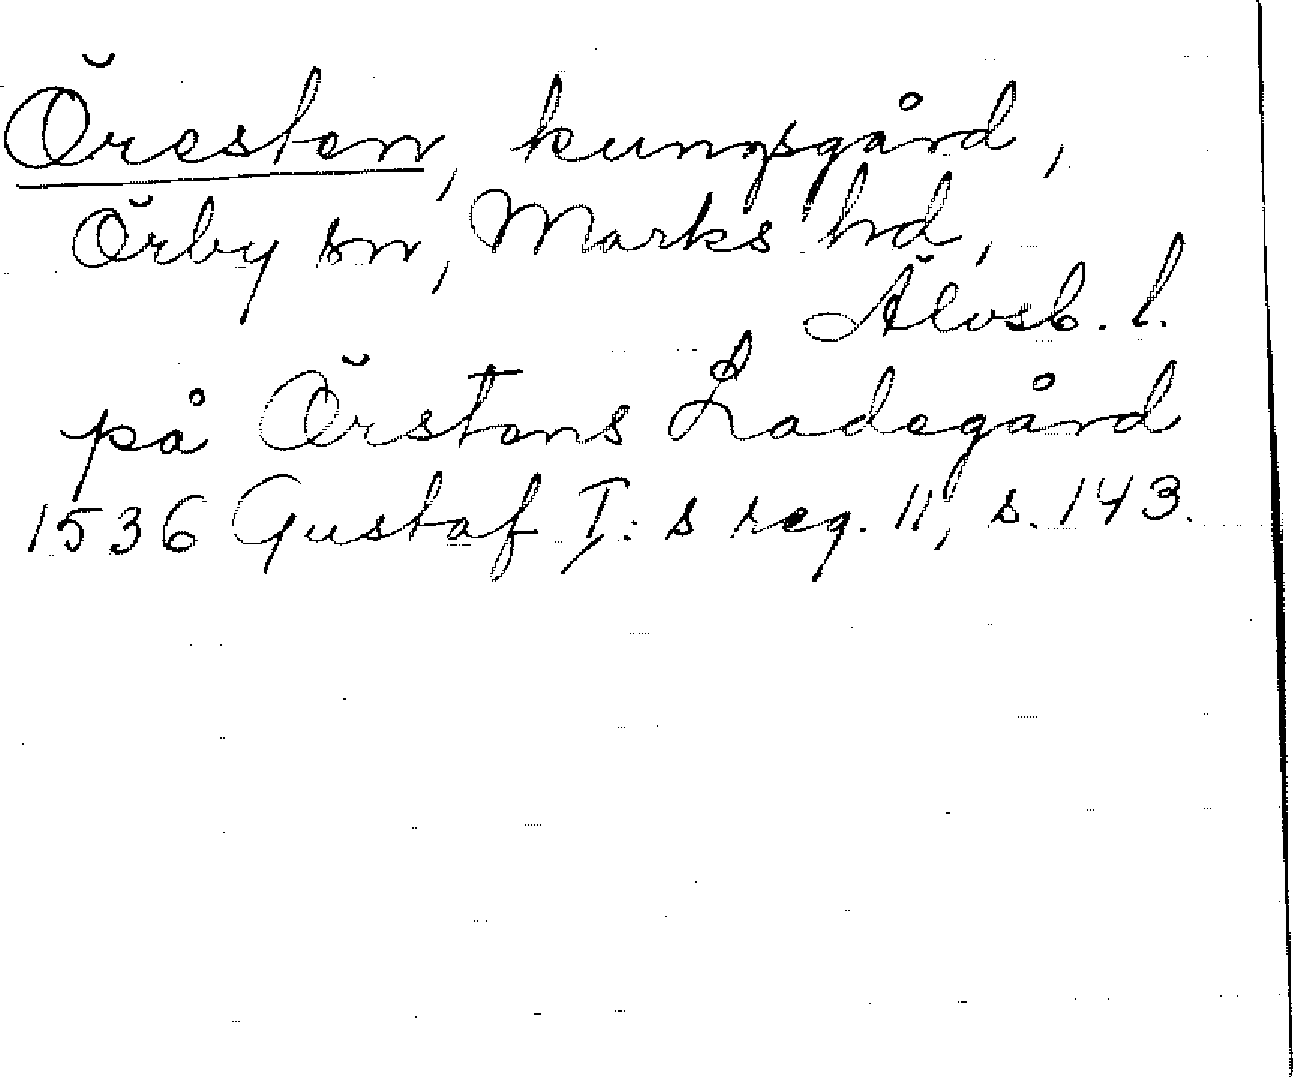 Öresten, kungsgård,
Örby sn, Marks hd,
Älvsb. l.
på Örstens Ladegård
1536 Gustaf I:s reg. 11, s. 143.